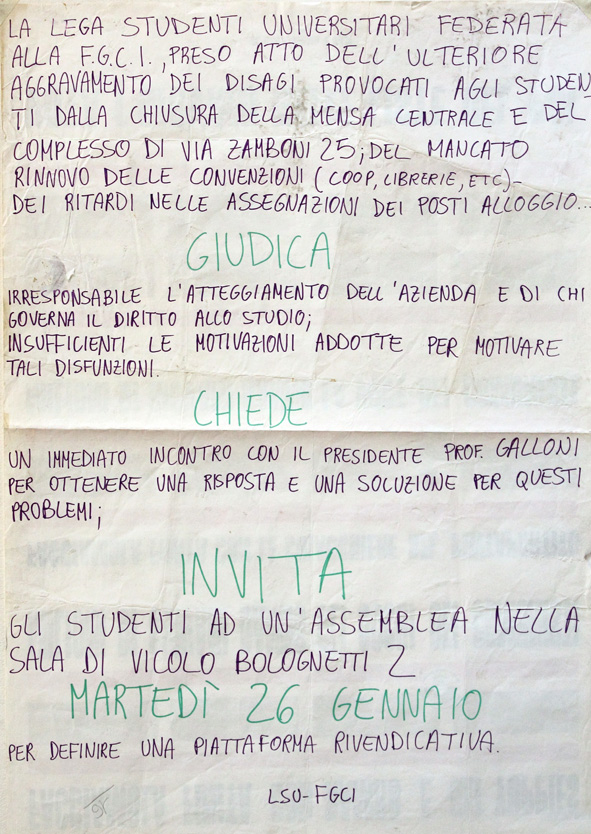 LA LEGA STUDENTI UNIVERSITARI FEDERATA
ALLA F.G.C.I., PRESO ATTO DELL'ULTERIORE
AGGRAVAMENTO DEI DISAGI PROVOCATI AGLI STUDEN
TI DALLA CHIUSURA DELLA MENSA CENTRALE E DEL
COMPLESSO DI VIA ZAMBONI 25; DEL MANCATO
RINNOVO DELLE CONVENZIONI (COOP, LIBRERIE, ETC)-
DEI RITARDI NELLE ASSEGNAZIONI DEI POSTI ALLOGGIO...
GIUDICA
IRRESPONSABILE L'ATTEGGIAMENTO DELL'AZIENDA E DI CHI
GOVERNA IL DIRITTO ALLO STUDIO;
INSUFFICIENTI LE MOTIVAZIONI ADDOTTE PER MOTIVARE
TALI DISFUNZIONI.
CHIEDE
UN IMMEDIATO INCONTRO CON IL PRESIDENTE PROF. GALLONI
PER OTTENERE UNA RISPOSTA E UNA SOLUZIONE PER QUESTI
PROBLEMI;
INVITA
GLI STUDENTI AD UN'ASSEMBLEA NELLA
SALA DI VICOLO BOLOGNETTI 2
MARTEDÌ 26 GENNAIO
PER DEFINIRE UNA PIATTAFORMA RIVENDICATIVA.
LSU-FGCI